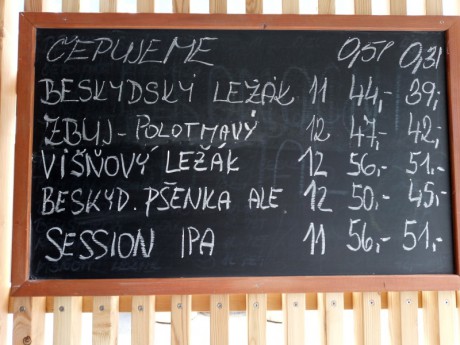 ČEPUJEME 0,5l 0,3l
BESKYDSKÝ LEŽÁK 11 44,- 39,-
ZBUJ - POLOTMAVÝ 12 47,- 42,-
VIŠŇOVÝ LEŽÁK 12 56,- 51,-
BESKYD. PŠENKA ALE 12 50,- 45,-
SESSION IPA 11 56,- 51,-